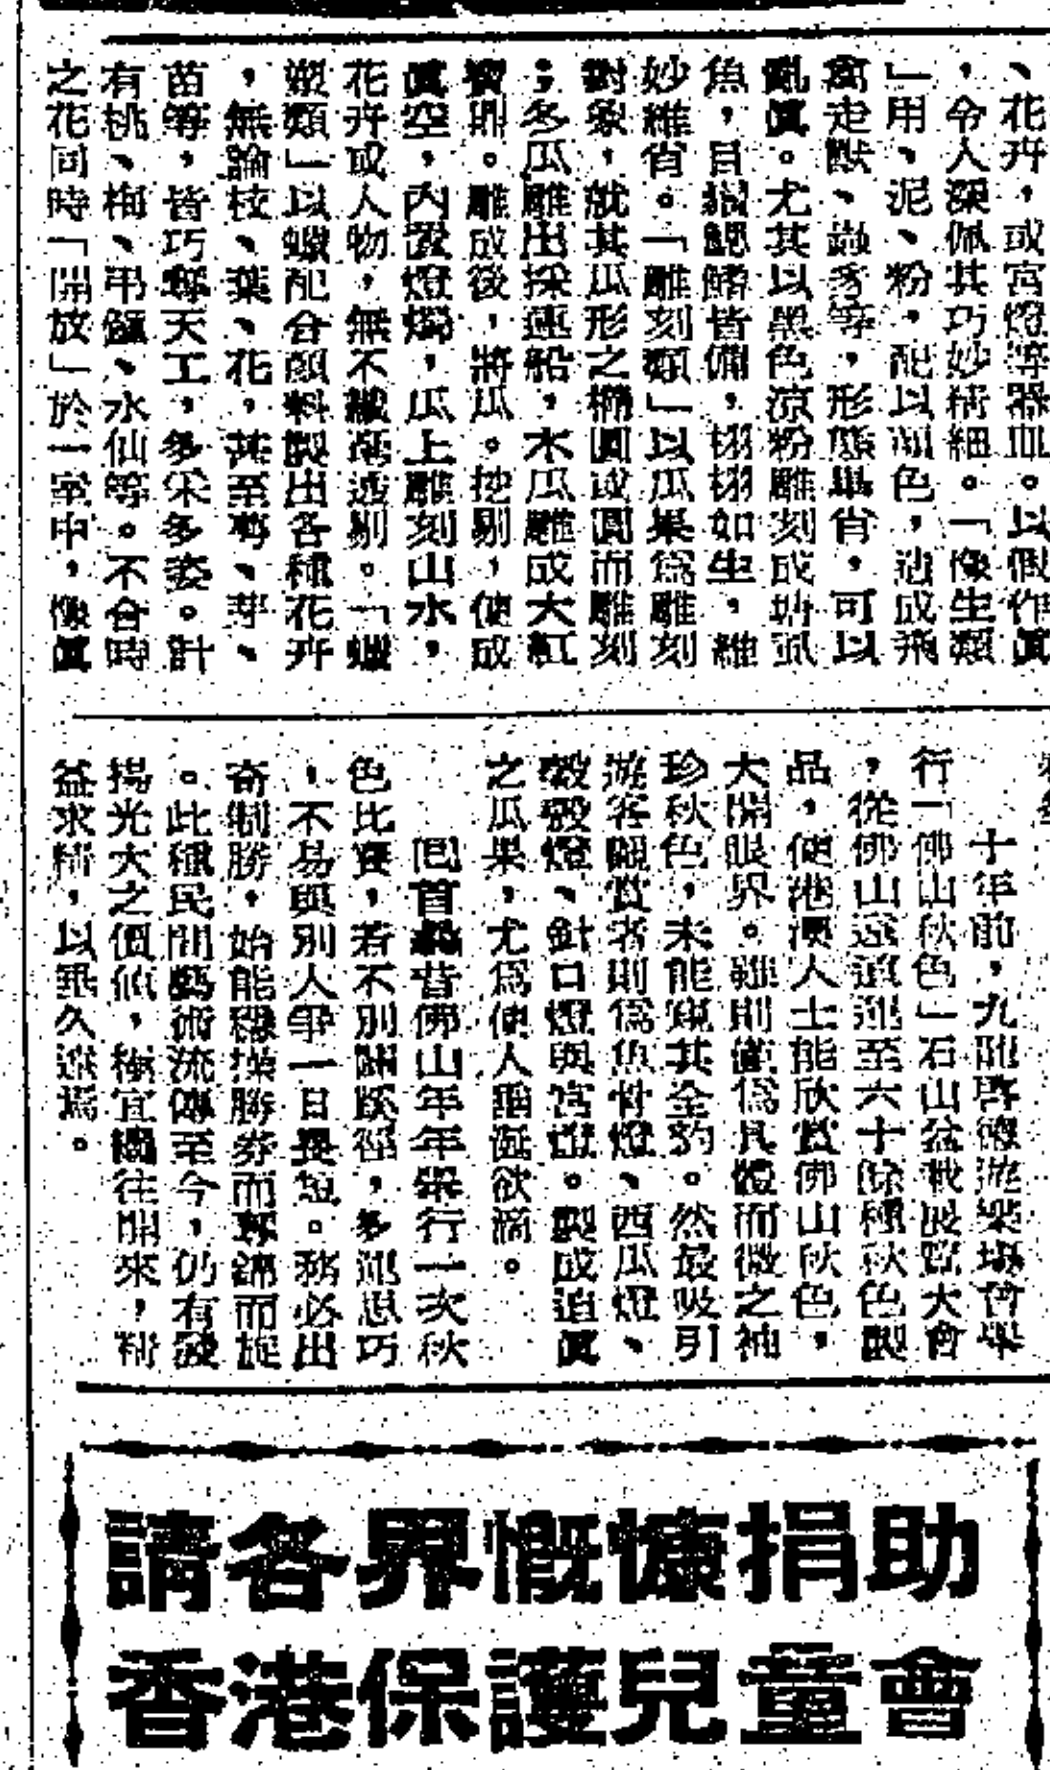 、花卉，或宮燈等器皿。以假作眞
，令人深佩其巧妙精細。「像生類
」用、泥、粉，配以顏色，造成飛
禽走獸、蟲豸等，形態畢肖，可以
亂眞。尤其以黑色涼粉雕刻成塘虱
魚，目擋鰓鰭皆備，栩栩如生，維
妙維肖。「雕刻類」以瓜果爲雕刻
對象，就其瓜形之橢圓或圓而雕刻
；冬瓜雕出採蓮船，木瓜雕成大紅
寶鼎。雕成後，將瓜。挖剔，使成
眞空，內置燈燭，瓜上雕刻山水，
花卉或人物，無不纖毫透剔。「蠟
塑類」以蠟配合顏料製出各種花卉
，無論枝、葉、花，甚至蕚、芽、
苗等，皆巧奪天工，多采多姿。計
有桃、梅、吊鐘、水仙等。不合時
之花同時「開放」於一室中，像眞
十年前，九龍啓德遊樂場曾舉
行「佛山秋色」石山盆栽展覽大會
，從佛山遠道運至六十餘種秋色製
品，使港澳人士能欣賞佛山秋色，
大開眼界。雖則僅爲具體而微之袖
珍秋色，未能窺其全豹。然最吸引
遊客觀賞者則爲魚骨燈、西瓜燈、
穀殼燈、針口燈與宮燈。製成迫眞
之瓜果，尤爲使人垂涎欲滴。
囘首曩昔佛山年年舉行一次秋
色比賽，若不別闢蹊徑，多運思巧
，不易與別人爭一日長短。務必出
奇制勝，始能穩操勝券而奪錦而旋
。此種民間藝術流傳至今，仍有發
揚光大之價值，極宜繼往開來，精
益求精，以垂久遠焉。
請各界慨慷捐助
香港保護兒童會